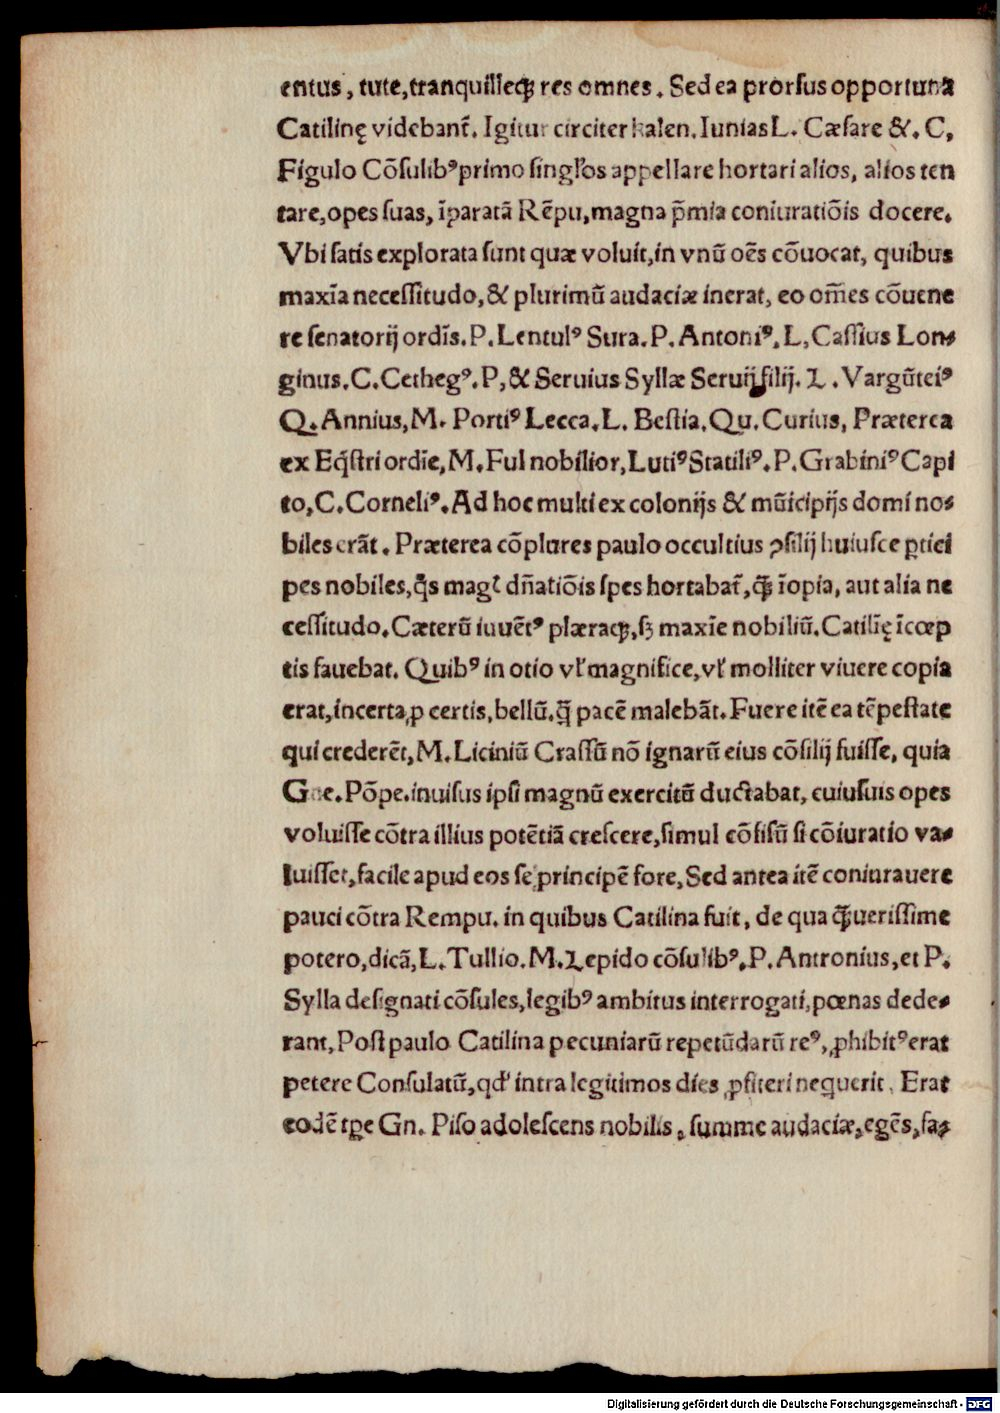 entus, tute, tranquilleqꝫ res omnes. Sed ea prorsus opportuna
Catilinę videbant̃. Igitur circiter kalen. Iunias L. Cæsare &. C,
Figulo Cõsulibꝰ primo singl'os appellare hortari alios, alios ten
tare, opes suas, ĩparatã Rẽpu, magna p̃mia coniuratiõis docere.
Vbi satis explorata sunt quæ voluit, in vnũ oẽs cõuocat, quibus
maxĩa necessitudo, & plurimũ audaciæ inerat, eo om̃es cõuene
re senatorij ordĩs. P. Lentulꝰ Sura. P. Antoniꝰ. L, Cassius Lon⸗
ginus. C. Cethegꝰ. P, & Seruius Syllæ Seruij filij. L. Vargũteiꝰ
Q. Annius, M. Portiꝰ Lecca. L. Bestia. Qu. Curius, Præterea
ex Eq̃stri ordĩe, M. Ful nobilior, Lutiꝰ Statiliꝰ. P. Grabiniꝰ Capi
to, C. Corneliꝰ. Ad hoc multi ex colonijs & mũicipijs domi no⸗
biles erãt. Præterea cõplures paulo occultius ꝯsilij huiusce ꝑtici
pes nobiles, q̃s magꝭ dñatiõis spes hortabat̃, q̃ꝫ ĩopia, aut alia ne
cessitudo. Cæterũ iuuẽtꝰ plæraqꝫ, sꝫ maxĩe nobiliũ. Catilĩę ĩcœp
tis fauebat. Quibꝰ in otio vl' magnifice, vl' molliter viuere copia
erat, incerta, ꝓ certis, bellũ. q̃ꝫ pacẽ malebãt. Fuere itẽ ea tẽpestate
qui crederẽt, M. Liciniũ Crassũ nõ ignarũ eius cõsilij fuisse, quia
Gne. Põpe. inuisus ipsi magnũ exercitũ ductabat, cuiusuis opes
voluisse cõtra illius potẽtiã crescere, simul cõfisũ si cõiuratio va⸗
luisset, facile apud eos se principẽ fore, Sed antea itẽ coniurauere
pauci cõtra Rempu. in quibus Catilina fuit, de qua q̃ꝫ uerissime
potero, dicã, L. Tullio. M. Lepido cõsulibꝰ. P. Antronius, et P.
Sylla designati cõsules, legibꝰ ambitus interrogati, pœnas dede⸗
rant, Post paulo Catilina pecuniarũ repetũdarũ reꝰ, ꝓhibitꝰ erat
petere Consulatũ, qd' intra legitimos dies ꝓfiteri nequerit. Erat
eodẽ tꝑe Gn. Piso adolescens nobilis, summe audaciæ, egẽs, fa⸗
Digitalisierung gefördert durch die Deutsche Forschungsgemeinschaft - DFG